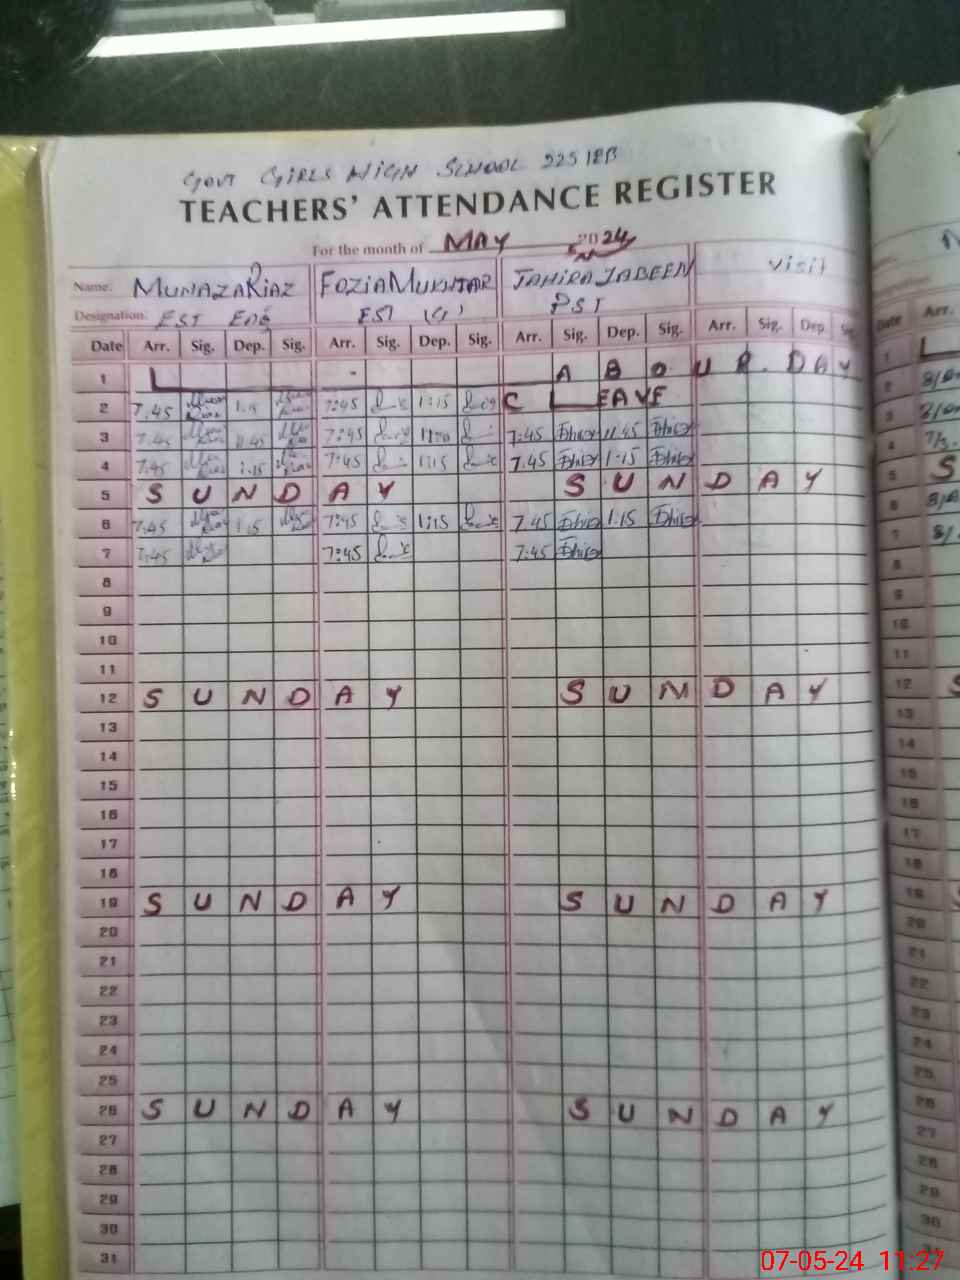 GOVT GIRLS HIGH SCHOOL 225 EB
TEACHERS' ATTENDANCE REGISTER
For the month of MAY 2024
Name: MUNAZA RIAZ FOZIA MUKHTAR TAHIRA JABEEN visit
Designation: EST ENG EST (G) PST
Date Arr. Sig. Dep. Sig. Arr. Sig. Dep. Sig. Arr. Sig. Dep. Sig. Arr. Sig. Dep. Date Arr.
1 L A B O U R. D A Y 1
2 7.45 1.15 7:45 1:15 C LEAVE 2
3 7.45 11.45 7:45 7:45 11.45 3
4 7.45 1.15 7:45 1:15 7.45 1.15 4
5 S U N D A Y S U N D A Y 5 S
6 7.45 1.15 7:45 1:15 7.45 1.15 6
7 7.45 7:45 7.45 7
8 8
9 9
10 10
11 11
12 S U N D A Y S U N D A Y 12 S
13 13
14 14
15 15
16 16
17 17
18 18
19 S U N D A Y S U N D A Y 19 S
20 20
21 21
22 22
23 23
24 24
25 25
26 S U N D A Y S U N D A Y 26
27 27
28 28
29 29
30 30
31
07-05-24 11:27